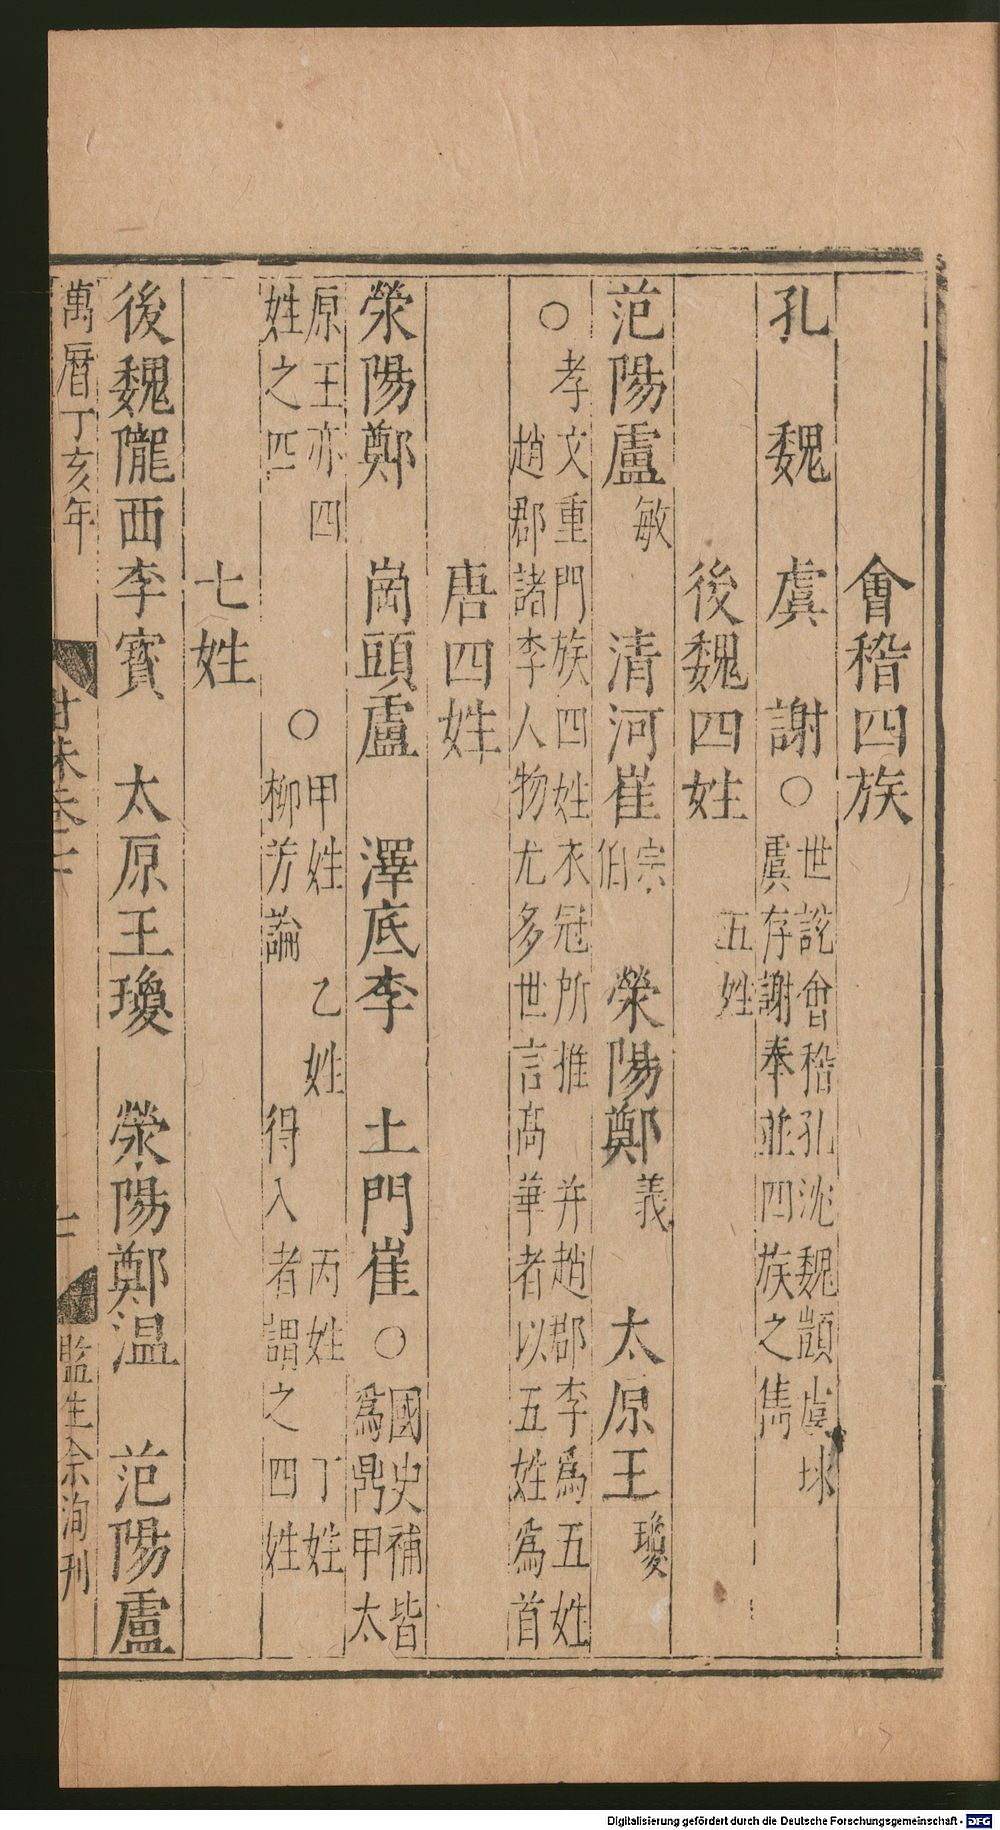 會稽四族
孔 魏 虞 謝○世說會稽孔沈魏顗虞球
虞存謝奉並四族之雋
後魏四姓 五姓
范陽盧敏 清河崔宗伯 滎陽鄭義 太原王瓊
○孝文重門族四姓衣冠所推 并趙郡李為五姓
趙郡諸李人物尤多世言高華者以五姓為首
唐四姓
滎陽鄭 崗頭盧 澤底李 土門崔○國史補皆
為鼎甲太
原王亦四
姓之匹 ○甲姓 乙姓 丙姓 丁姓
柳芳論 得入者謂之四姓
七姓
後魏隴西李寶 太原王瓊 滎陽鄭温 范陽盧
萬曆丁亥年 監生余洵刊
Digitalisierung gefördert durch die Deutsche Forschungsgemeinschaft - DFG